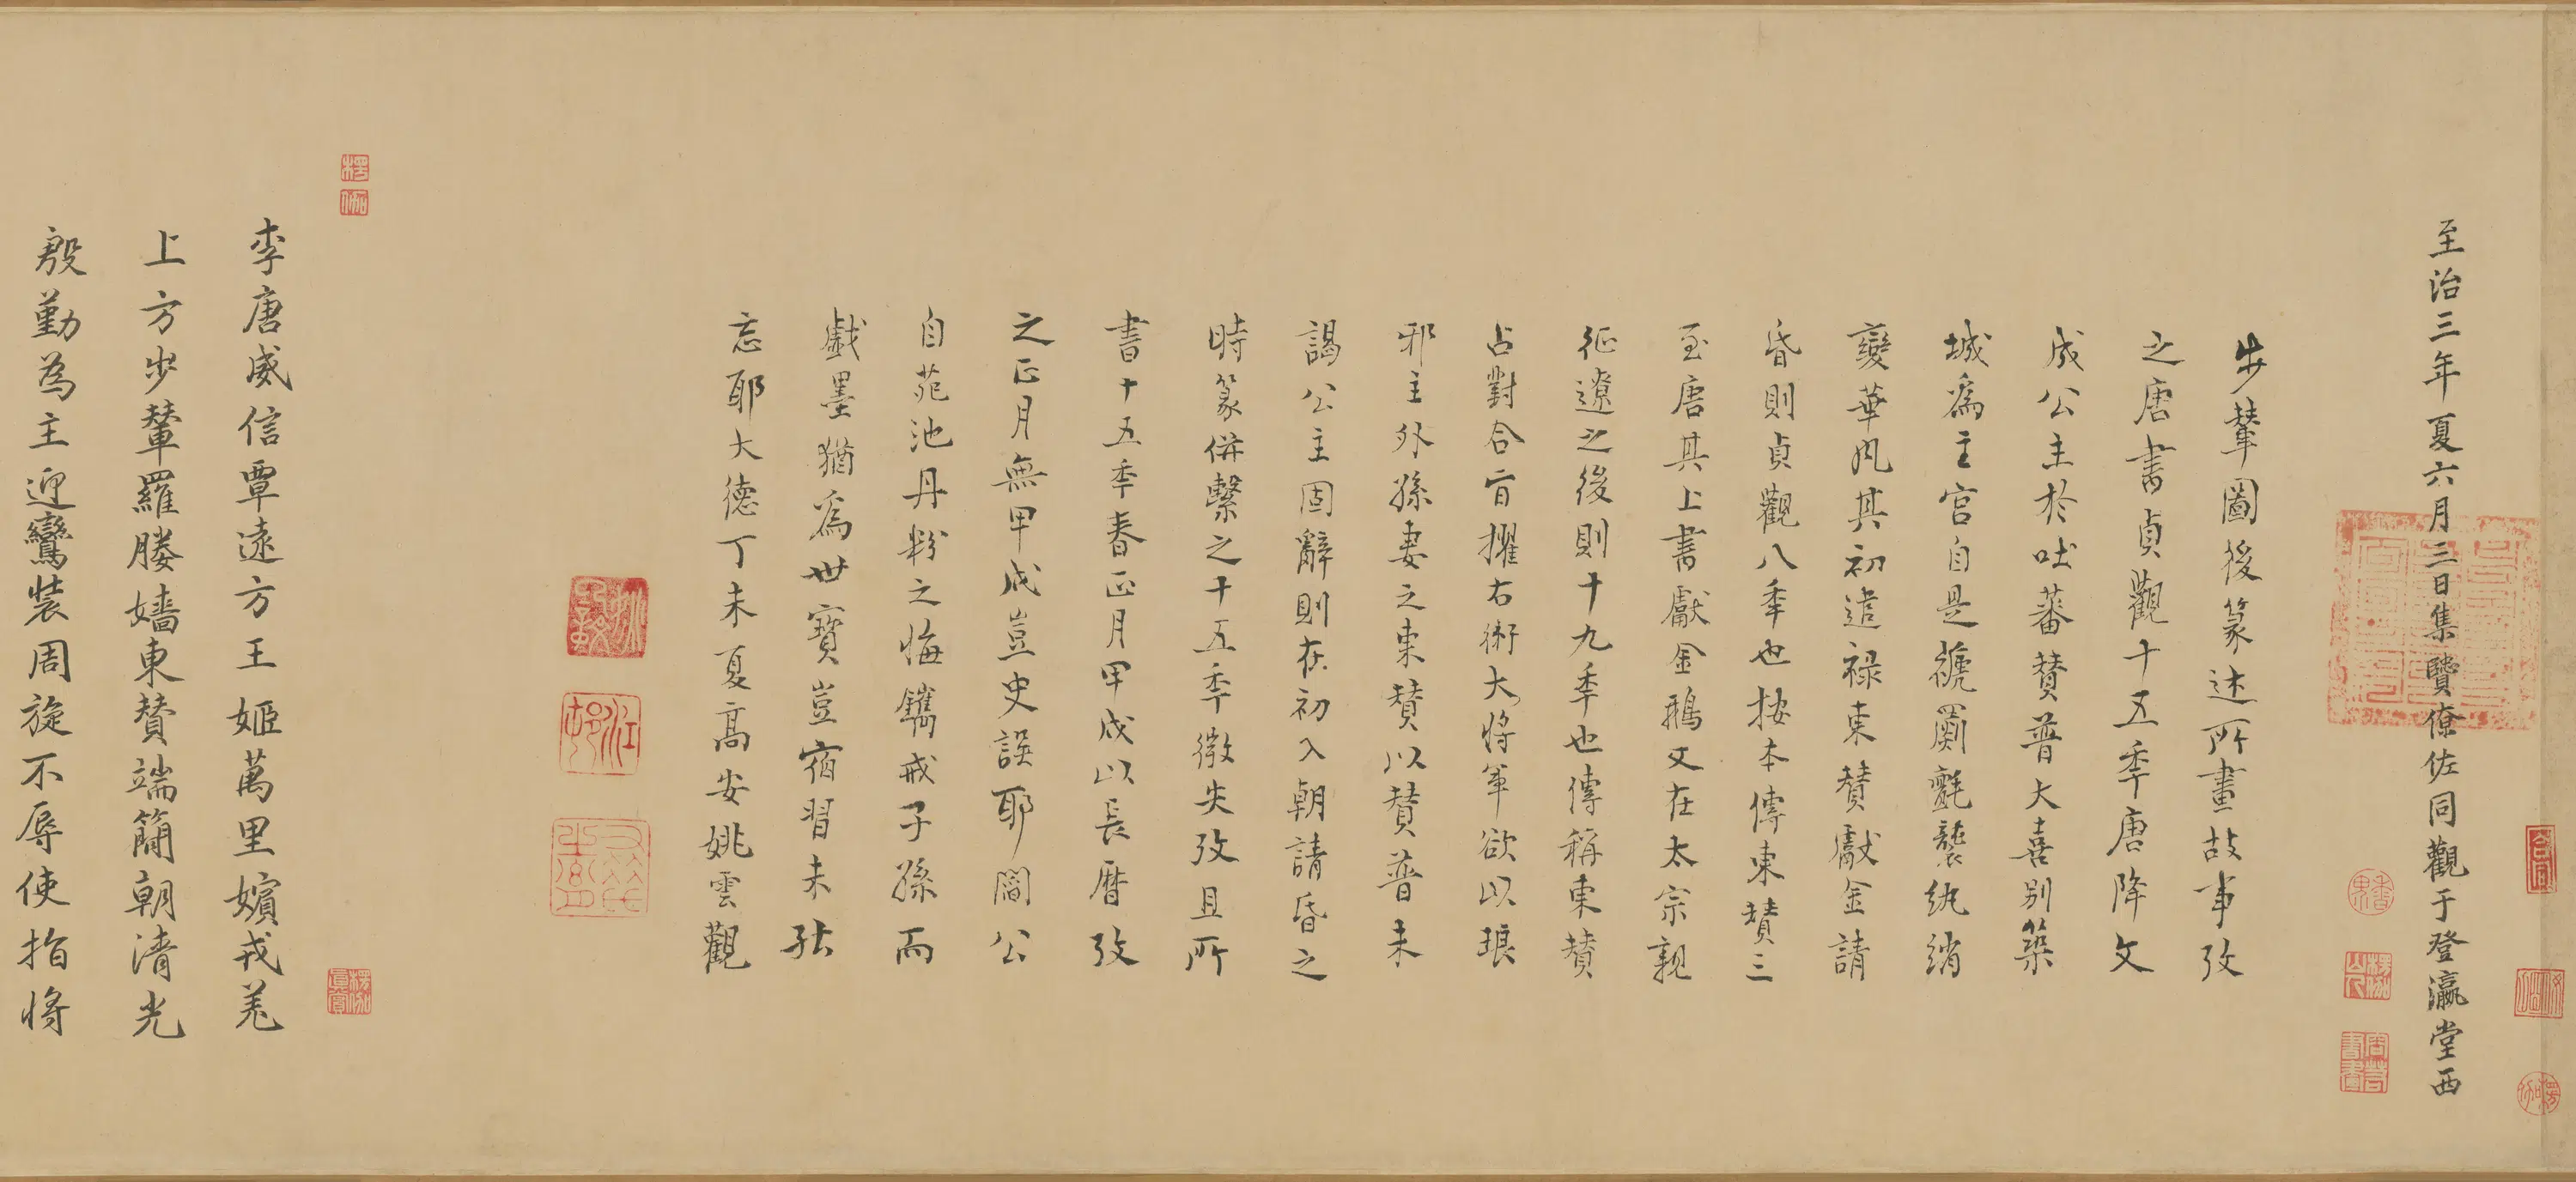 至治三年夏六月三日集賢僚佐同觀于登瀛堂西
步輦圖後篆述所畫故事攷
之唐書貞觀十五季唐降文
成公主於吐蕃贊普大喜別築
城爲主宮自是褫罽氎襲紈綃
變華風其初遣祿東贊獻金請
昏則貞觀八季也按本傳東贊三
至唐其上書獻金鵝又在太宗親
征遼之後則十九季也傳稱東贊
占對合旨擢右衛大將軍欲以琅
邪主外孫妻之東贊以贊普未
謁公主固辭則在初入朝請昏之
時篆併繫之十五季微失攷且所
書十五季春正月甲戌以長曆攷
之正月無甲戌豈史誤耶閻公
自苑池丹粉之悔鐫戒子孫而
戲墨猶爲世寶豈宿習未
忘耶大德丁未夏高安姚雲觀
李唐威信覃遠方王姬萬里嬪戎羌
上方步輦羅媵嬙東贊端簡朝清光
殷勤為主迎鸞裝周旋不辱使指將